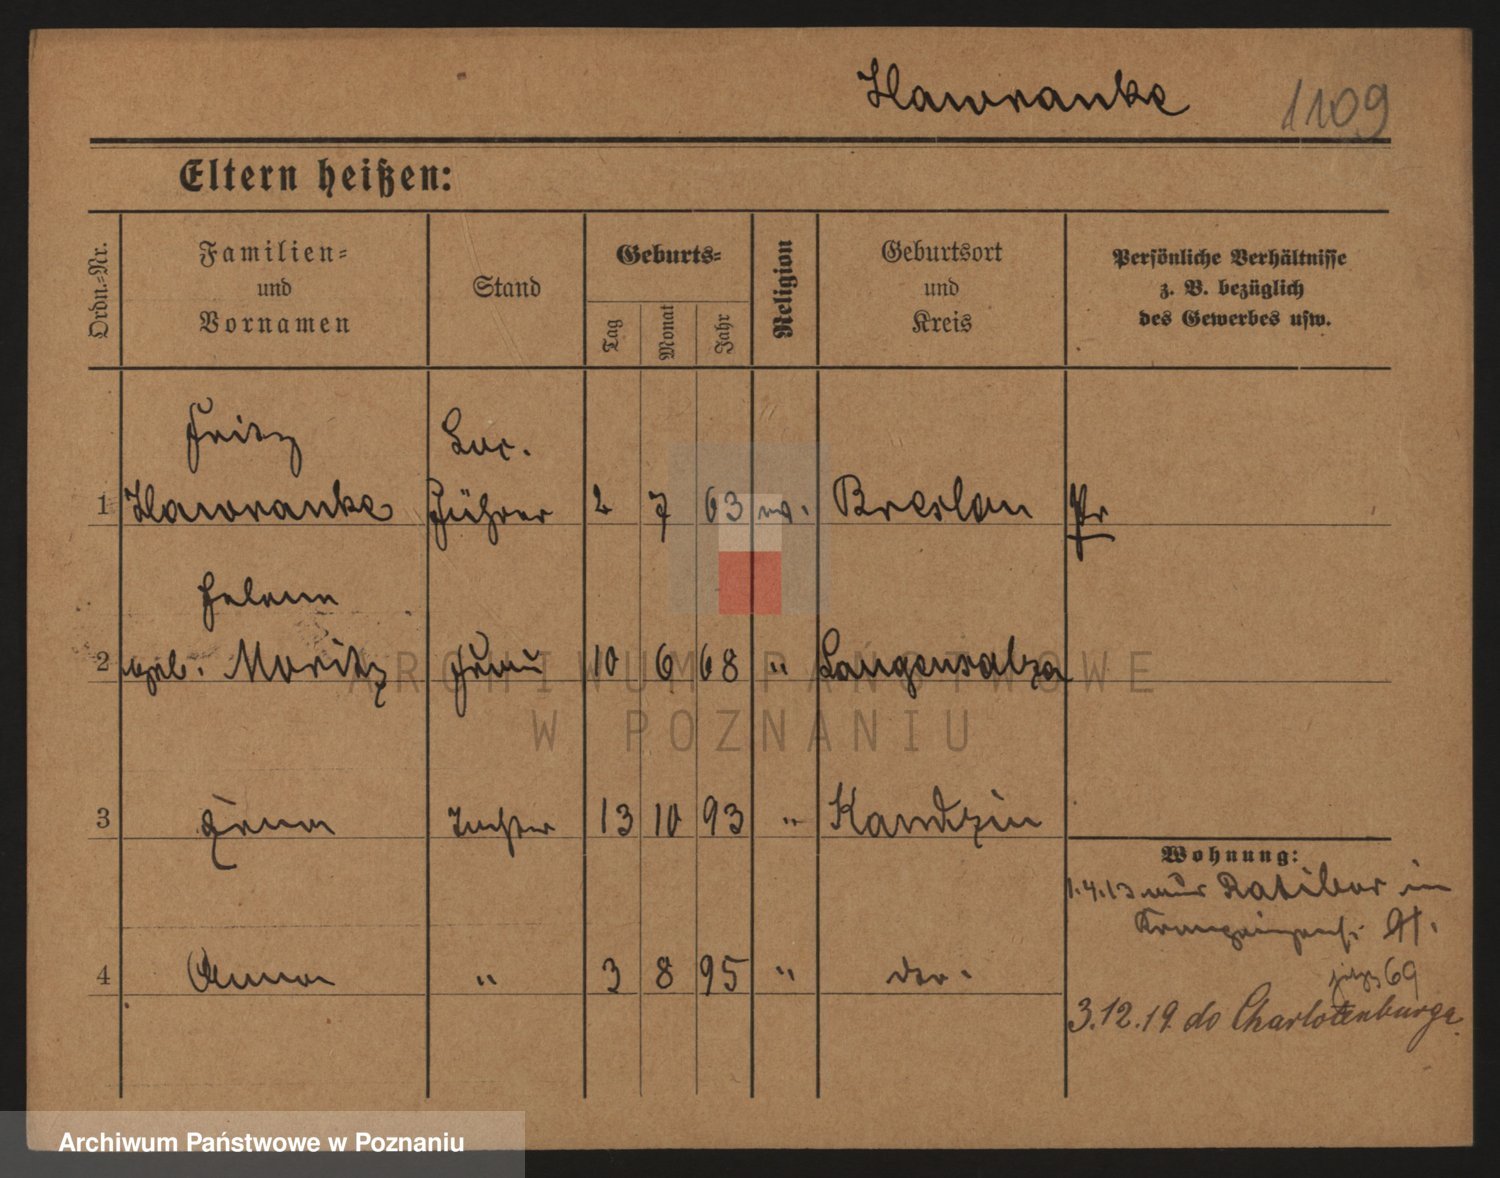 Hawranke 1109
Eltern heißen:
Ordn.-Nr.
Familien-
und
Vornamen
Stand
Geburts-
Tag
Monat
Jahr
Religion
Geburtsort
und
Kreis
Persönliche Verhältnisse
z. B. bezüglich
des Gewerbes usw.
Fritz Loc.
1 Hawranke Führer 2 7 63 ev. Breslau Pr
Helene
2 geb. Moritz Frau 10 6 68 " Langensalza
3 Erna Tochter 13 10 93 " Kandrzin
Wohnung:
1.4.13 aus Ratibor in
91.
4 Anna " 3 8 95 " do.
jetzt 69
3.12.19. do Charlotenburga.
ARCHIWUM PAŃSTWOWE
W POZNANIU
Archiwum Państwowe w Poznaniu